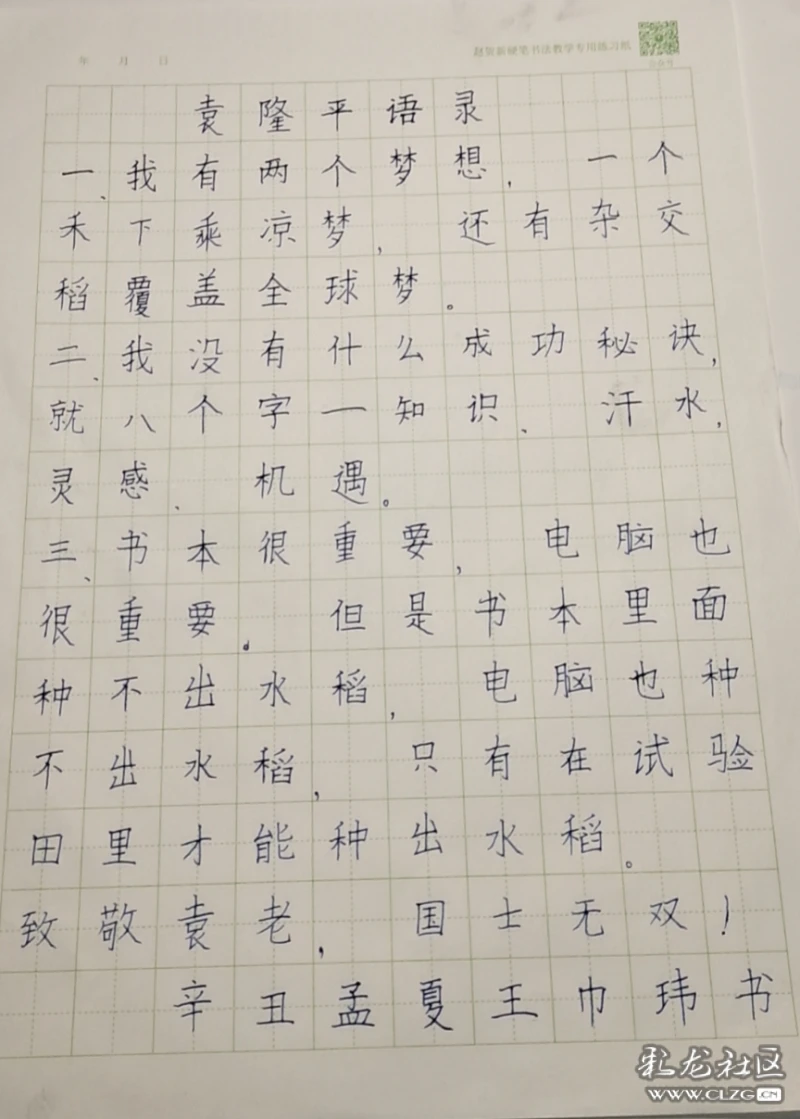 年 月 日
硬笔书法教学专用练习纸
袁隆平语录
一、我有两个梦想，一个
禾下乘凉梦，还有杂交
稻覆盖全球梦。
二、我没有什么成功秘诀，
就八个字一知识、汗水，
灵感、机遇。
三、书本很重要，电脑也
很重要。但是书本里面
种不出水稻，电脑也种
不出水稻，只有在试验
田里才能种出水稻。
致敬袁老，国士无双！
辛丑孟夏王巾玮书
乳龙社区
www.CLZG.cn